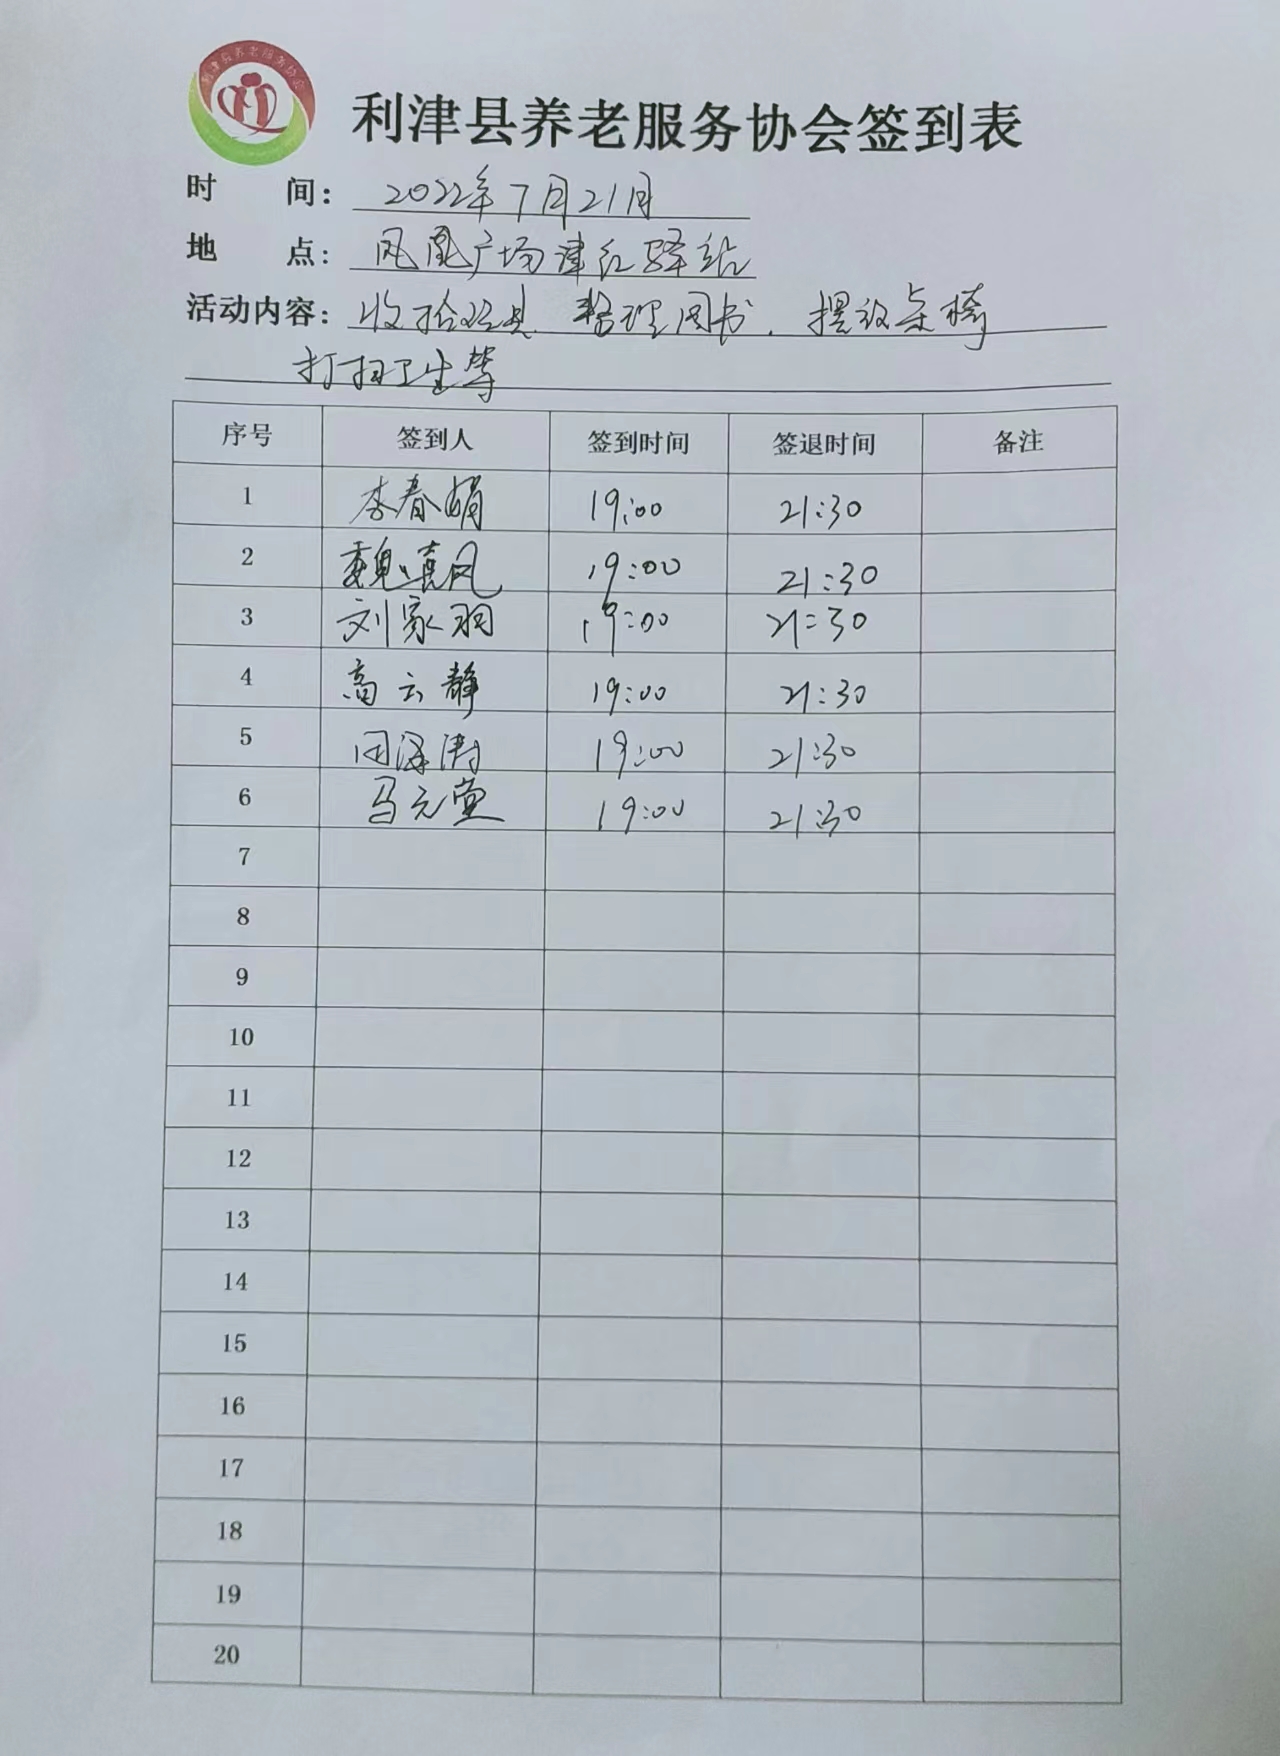 利津县养老服务协会
利津县养老服务协会签到表
时 间: 2022年7月21日
地 点: 凤凰广场津红驿站
活动内容: 收拾玩具、整理图书、摆放桌椅
打扫卫生等
序号 签到人 签到时间 签退时间 备注
1 李春娟 19:00 21:30
2 魏真风 19:00 21:30
3 刘家羽 19:00 21:30
4 高云静 19:00 21:30
5 田泽涛 19:00 21:30
6 马元堂 19:00 21:30
7
8
9
10
11
12
13
14
15
16
17
18
19
20